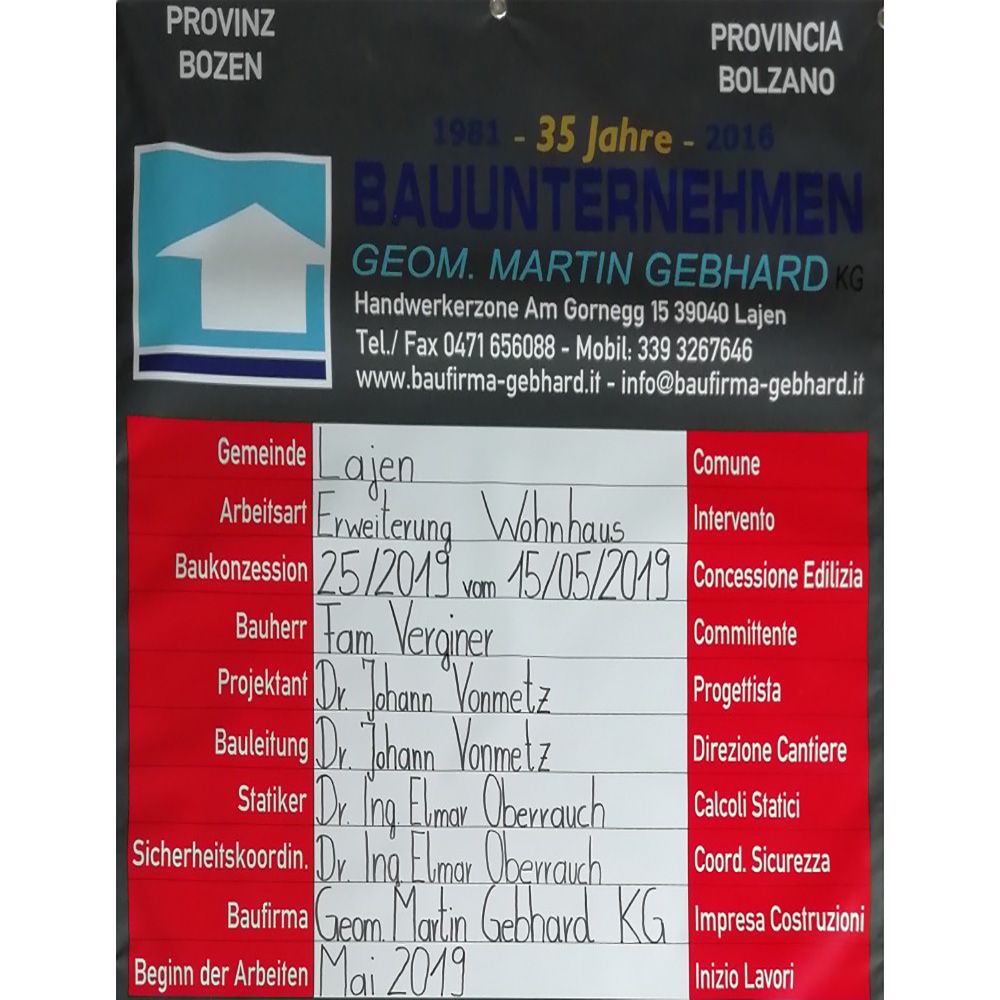 PROVINZ PROVINCIA
BOZEN BOLZANO
1981 - 35 Jahre - 2016
BAUUNTERNEHMEN
GEOM. MARTIN GEBHARD KG
Handwerkerzone Am Gornegg 15 39040 Lajen
Tel./ Fax 0471 656088 - Mobil: 339 3267646
www.baufirma-gebhard.it - info@baufirma-gebhard.it
Gemeinde Lajen Comune
Arbeitsart Erweiterung Wohnhaus Intervento
Baukonzession 25/2019 vom 15/05/2019 Concessione Edilizia
Bauherr Fam. Verginer Committente
Projektant Dr. Johann Vonmetz Progettista
Bauleitung Dr. Johann Vonmetz Direzione Cantiere
Statiker Dr. Ing. Elmar Oberrauch Calcoli Statici
Sicherheitskoordin. Dr. Ing. Elmar Oberrauch Coord. Sicurezza
Baufirma Geom. Martin Gebhard KG Impresa Costruzioni
Beginn der Arbeiten Mai 2019 Inizio Lavori